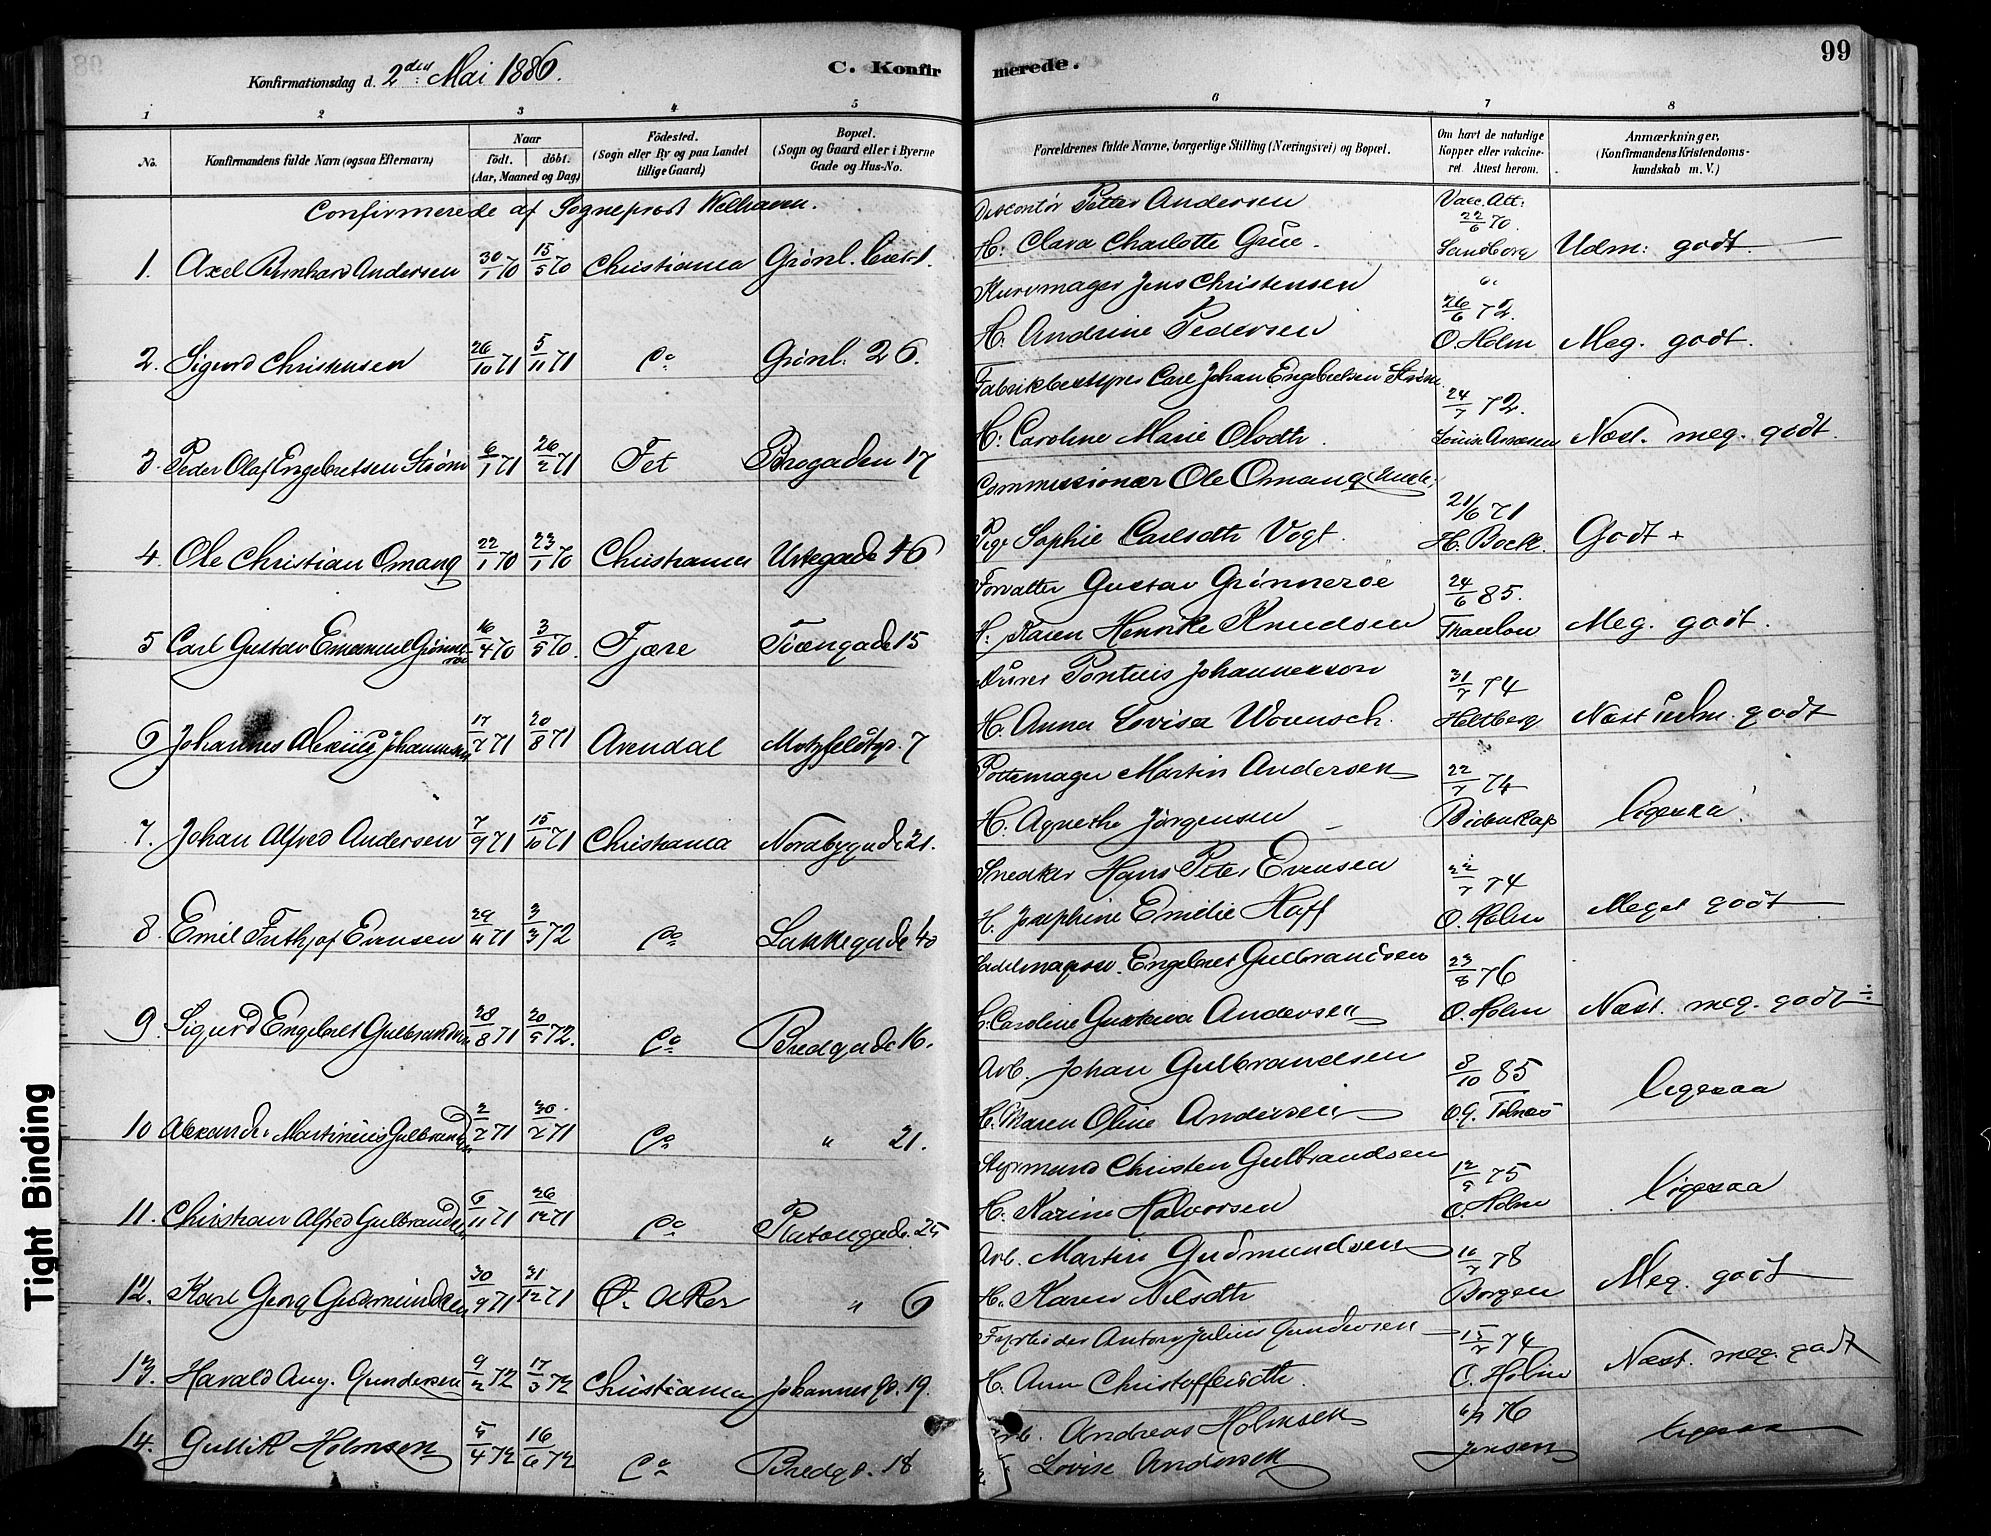 99
Konfirmationsdag d. 2den Mai 1886.
C. Konfirmerede.
1 2 3 4 5 6 7 8
No.
Konfirmandens fulde Navn (ogsaa Efternavn)
Naar
født. døbt.
(Aar, Maaned og Dag)
Fødested.
(Sogn eller By og paa Landet
tillige Gaard)
Bopæl.
(Sogn og Gaard eller i Byerne
Gade og Hus-No.
Forældrenes fulde Navne, borgerlige Stilling (Næringsvei) og Bopæl.
Om havt de naturlige
Kopper eller vakcine-
ret. Attest herom.
Anmærkninger.
(Konfirmandens Kristendoms-
kundskab m. V.)
Confirmerede af Sogneprest Welhaven.
Petter Andersen
Vacc. Att:
22/6 70.
1. Axel Bernhard Andersen 30/1 70 15/5 70 Christiania Grønl.
H: Clara Charlotte Sandberg Udm: godt
Kurvmager Jens Christensen
26/6 72.
2. Sigurd Christensen 26/10 71 5/11 71 Co Grønl. 26.
H. Andrine Pedersen O. Holm Meg. godt.
Carl Johan Engebretsen Strøm
24/7 72.
3 Peder Olaf Engebretsen Strøm 6/1 71 26/2 71 Fet Brogaden 17
H: Caroline Marie Olsdtr. Næst. meg. godt.
Commissionær Ole Omang
21/6 71
4. Ole Christian Omang 22/1 70 23/1 70 Christiania Urtegade 46
Pige Sophie Carlsdtr Vogt. H. Bock. Godt +
Forvalter Gustav Grønnerøe
24/6 85.
5 Carl Gustav Emanuel Grønnerøe 16/4 70 3/5 70. Fjære Tøiengade 15
H: Karen Henrike Knudsen Meg. godt.
Pontus Johannesson
31/7 74
6 Johannes Johannesen 17/7 71 20/8 71 Arendal Motzfeldtgd. 7
H. Anna Lovisa Heltberg Næst udm. godt
Pottemager Martin Andersen
22/7 74
7. Johan Alfred Andersen 7/9 71 15/10 71 Christiania Nordbygade 21.
H. Agnethe Jørgensen Bidenkap ligesaa
Snedker Hans Peter Evensen
22/7 74
8. Emil Frithjof Evensen 29/11 71 3/3 72 Co Lakkegade 40
H. Josephine Emilie O. Holm Meget godt
Sadelmagersv. Engebret Gulbrandsen
23/8 76
9. Sigurd Engebret Gulbrandsen 28/8 71 20/5 72. Co Bredgade 16.
H. Caroline Gustava Andersen O. Holm Næst. meg. godt ÷
Arb. Johan Gulbrandsen
8/10 85
10 Alexander Martinius Gulbrandsen 2/2 71 30/2 71 Co " 21.
H. Maren Oline Andersen ligesaa
Styrmand Christen Gulbrandsen
12/9 75
11. Christian Alfred Gulbrandsen 6/11 71 26/12 71 Co Platougade. 25
H. Karine Halvorsen O. Holm ligesaa
Arb. Martin Gudmundsen
16/7 78
12. Karl Georg Gudmundsen 30/9 71 31/12 71 Ø. Aker " 6
H. Karen Nilsdtr Borgen Meg. godt
Anton Julius Gundersen
15/7 74
13. Harald Aug. Gundersen 9/2 72 17/3 72 Christiania Johannes gd. 19.
H. Ann Christoffersdtr. O. Holm Næst. meg. godt
Arb. Andreas Holmsen
6/9 76
14. Gullik Holmsen 5/4 72 16/6 72 Co Bredgd. 18
Lovise Andersen Jensen ligesaa
Tight Binding